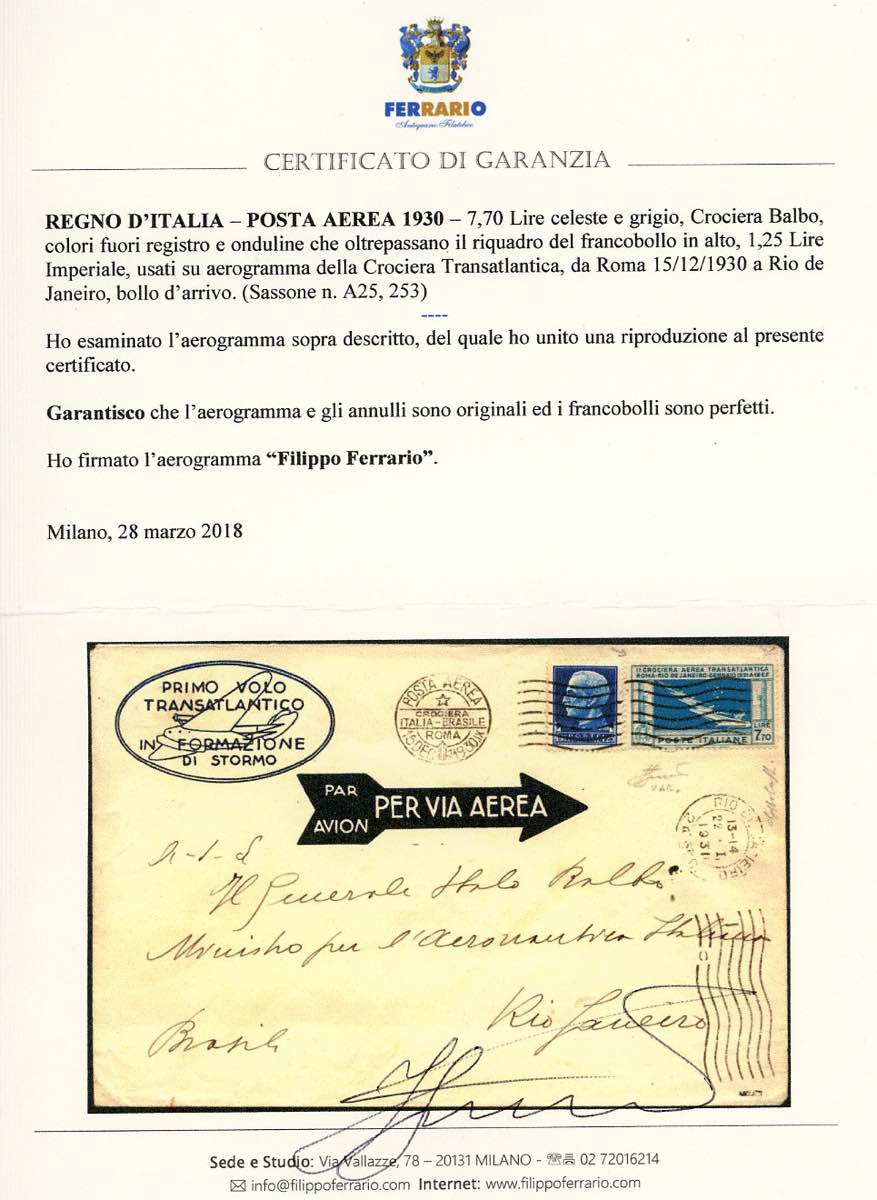 FERRARIO
Antiquario Filatelico
CERTIFICATO DI GARANZIA
REGNO D'ITALIA – POSTA AEREA 1930 – 7,70 Lire celeste e grigio, Crociera Balbo,
colori fuori registro e onduline che oltrepassano il riquadro del francobollo in alto, 1,25 Lire
Imperiale, usati su aerogramma della Crociera Transatlantica, da Roma 15/12/1930 a Rio de
Janeiro, bollo d'arrivo. (Sassone n. A25, 253)
----
Ho esaminato l'aerogramma sopra descritto, del quale ho unito una riproduzione al presente
certificato.
Garantisco che l'aerogramma e gli annulli sono originali ed i francobolli sono perfetti.
Ho firmato l'aerogramma "Filippo Ferrario".
Milano, 28 marzo 2018
PRIMO VOLO
TRANSATLANTICO
IN FORMAZIONE
DI STORMO
POSTA AEREA
CROCIERA
ITALIA-BRASILE
ROMA
15 DEC 1930 IX
II CROCIERA AEREA TRANSATLANTICA
ROMA-RIO DE JANEIRO-GENNAIO 1931 A IX E.F.
LIRE
7,70
POSTE ITALIANE
PAR
AVION
PER VIA AEREA
RIO DE JANEIRO
13-14
22 I
1931
Il Generale Italo Balbo
Ministro per l'Aeronautica Italiana
Rio Janeiro
Brasile
Sede e Studio: Via Vallazze, 78 – 20131 MILANO - ☏ 02 72016214
✉ info@filippoferrario.com Internet: www.filippoferrario.com